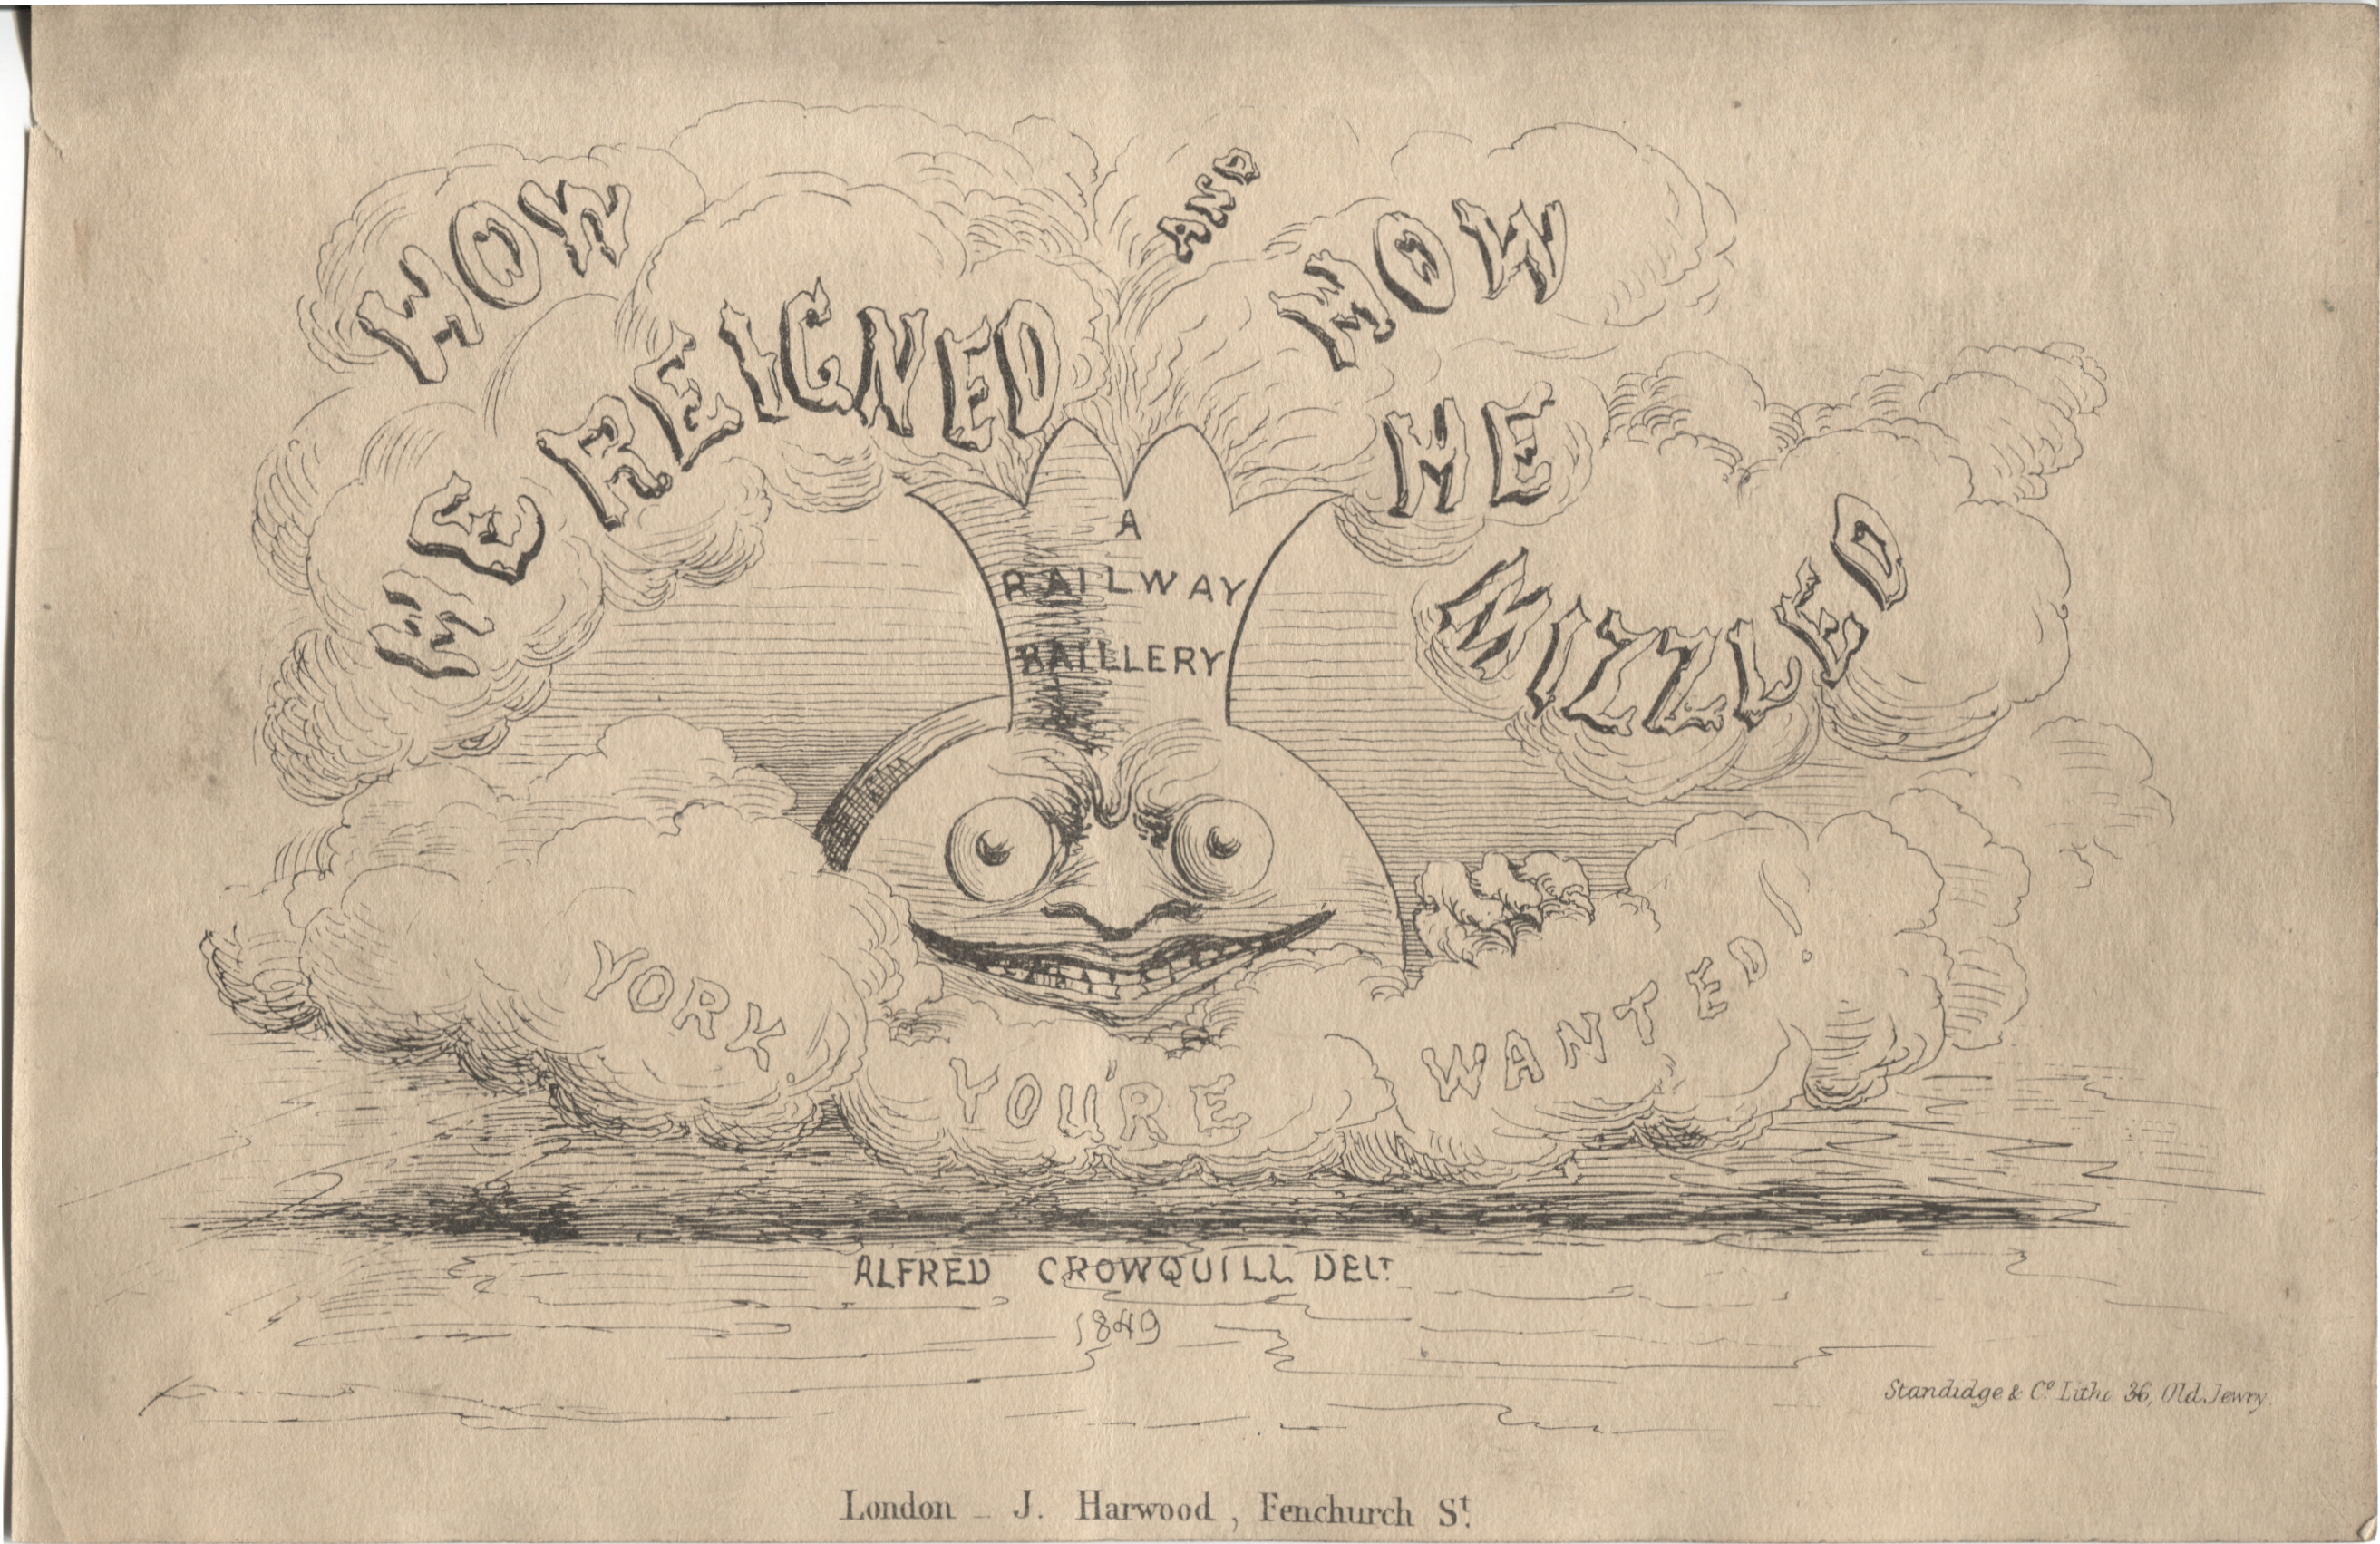 HOW
HE REIGNED
AND
HOW
HE
MIZZLED
A
RAILWAY
RAILLERY
YORK,
YOU'RE
WANTED!
ALFRED CROWQUILL DELT
1849
Standidge & Co. Litho 36, Old Jewry
London _ J. Harwood, Fenchurch St.